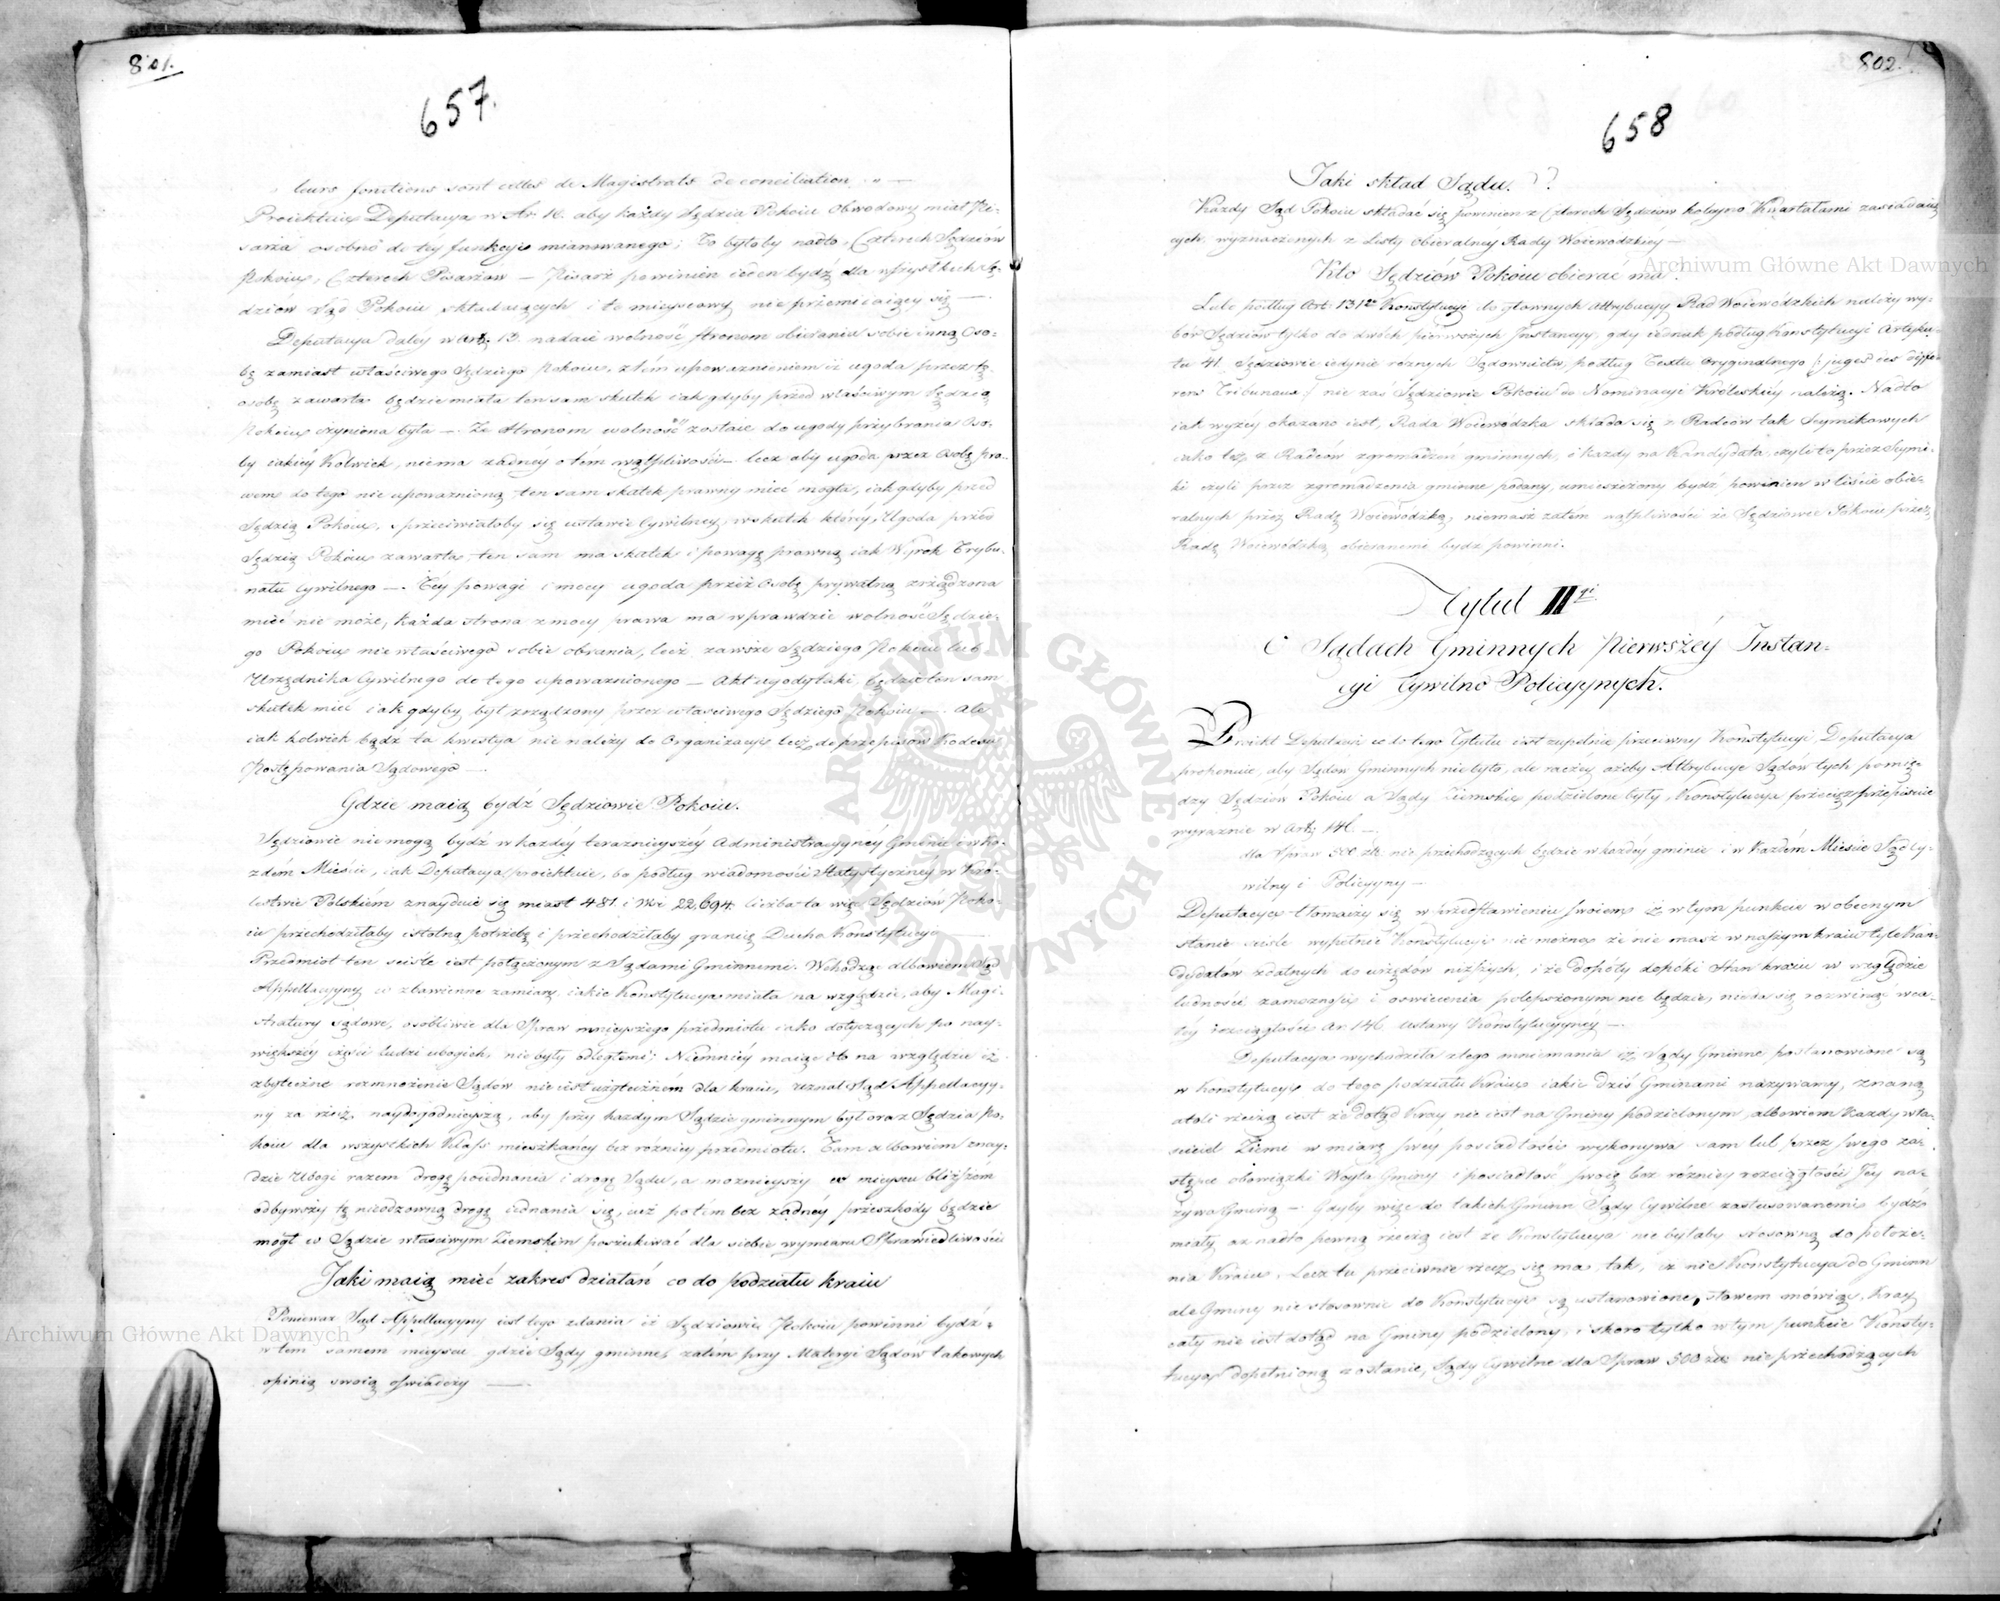 801.
657.
leurs fonctions sont celles de Magistrats de conciliation „ —
Proiektuie Deputacya w Ar. 16. aby każdy Sędzia Pokoiu Obwodowy miał Pi-
sarza osobno do tey funkcyi mianowanego; To byłoby nadto, Czterech Sędziów
Pokoiu, Czterech Pisarzow — Pisarz powinien ieden bydź dla wszystkich Sę-
dziów Sąd Pokoiu składaiących i to mieyscowy nieprzemieniaiący się —.
Deputacya daléy w Art. 13. nadaie wolność stronom obierania sobie inną Oso-
bę zamiast właściwego Sędziego Pokoiu, z tém upoważnieniem iż ugoda przez tę
osobę zawarta będzie miała ten sam skutek iak gdyby przed właściwym Sędzią
Pokoiu czyniona była —. Ze stronom wolność zostaie do ugody przybrania Oso-
by iakiéy kolwiek, niema żadnéy o tém wątpliwości — lecz aby ugoda przez Osobę pra-
wem do tego nie upoważnioną ten sam skutek prawny mieć mogła, iak gdyby przed
Sędzią Pokoiu, sprzeciwiałoby się ustawie Cywilney, w skutek któréy Ugoda przed
Sędzią Pokoiu zawarta ten sam ma skutek i powagę prawną iak Wyrok Trybu-
nału Cywilnego —. Tey powagi i mocy ugoda przez Osobę prywatną zrządzona
mieć nie może, każda strona z mocy prawa ma wprawdzie wolność Sędzie-
go Pokoiu niewłaściwego sobie obrania, lecz zawsze Sędziego Pokoiu lub
Urzędnika Cywilnego do tego upoważnionego — Akt ugody taki, będzie ten sam
skutek mieć iak gdyby był zrządzony przez właściwego Sędziego Pokoiu —. Ale
iak kolwiek bądź ta kwestya nie należy do Organizacyi lecz do przepisów Kodexu
Postępowania Sądowego —.
Gdzie maią bydź Sędziowie Pokoiu.
Sędziowie niemogą bydź w każdéy terazniejszéy Administracyynéy Gminie i w ka-
żdém Mieście, iak Deputacya proiektuie, bo podług wiadomości Statystycznéy w Kró-
lestwie Polskiém znayduie się miast 481. i Wsi 22,694. liczba ta więc Sędziów Poko-
iu przechodziłaby istotną potrzebę i przechodziłaby granicę Ducha Konstytucyi —
Przedmiot ten ściśle iest połączonym z Sądami Gminnemi. Wchodząc albowiem Sąd
Appellacyyny w zbawienne zamiary, iakie Konstytucya miała na względzie, aby Magi-
stratury sądowe, osobliwie dla Spraw mnieyszego przedmiotu iako dotyczących po nay-
większéy części ludzi ubogich, niebyły odległemi; Niemniéy maiąc to na względzie iż
zbyteczne rozmnożenie Sądów nie iest użyteczném dla kraiu, uznał Sąd Appellacyy-
ny za rzecz naydogodnieyszą, aby przy każdym Sądzie gminnym był oraz Sędzia po-
koiu dla wszystkich klass mieszkańcy bez różnicy przedmiotu. Tam albowiem znay-
dzie Ubogi razem drogę poiednania i drogę Sądu, a możnieyszy w mieyscu bliższém
odbywszy tę nieodzowną drogę iednania się, iuż potém bez żadnéy przeszkody będzie
mógł w Sądzie właściwym Ziemskim poszukiwać dla siebie wymiaru Sprawiedliwości
Jaki maią mieć zakres działań co do podziału kraiu
Ponieważ Sąd Appellacyyny iest tego zdania iż Sędziowie Pokoiu powinni bydź
w tém samém mieyscu gdzie Sądy gminne, zatém przy Materyi Sądów takowych
opinią swoią oświadczy —.
802.
658
Jaki skład Sądu.
Każdy Sąd Pokoiu składać się powinien z Czterech Sędziów koleyno Kwartałami zasiadaią-
cych, wyznaczonych z Listy obieralnéy Rady Woiewodzkiéy —
Kto Sędziów Pokoiu obierać ma.
Lubo podług Art: 131 Konstytucyi do głownych Attrybucyy Rad Woiewódzkich należy wy-
bór Sędziów tylko do dwóch pierwszych Instancyy, gdy iednak podług Konstytucyi Artyku-
łu 41. Sędziowie iedynie różnych Sądownictw, podług Textu Oryginalnego (: juges des diffe-
rens Tribunaux :) nie zaś Sędziowie Pokoiu do Nominacyi Królewskiéy należą. Nadto
iak wyżéy okazano iest, Rada Woiewódzka składa się z Radców tak Seymikowych
iako też z Radców zgromadzeń gminnych, i każdy na Kandydata, czyli to przez Seymi-
ki czyli przez zgromadzenia gminne podany, umieszczony bydź powinien w liście obie-
ralnych przez Radę Woiewódzką, niemasz zatém wątpliwości że Sędziowie Pokoiu przez
Radę Woiewódzką obieranemi bydź powinni.
Tytuł II gi.
O Sądach Gminnych Pierwszéy Instan-
cyi Cywilno Policyynych.
Proiekt Deputacyi co do tego Tytułu iest zupełnie przeciwny Konstytucyi, Deputacya
proponuie, aby Sądów Gminnych niebyło, ale raczéy ażeby Attrybucye Sądów tych pomię-
dzy Sędziów Pokoiu a Sądy Ziemskie podzielone były, Konstytucya przecież przepisuie
wyraźnie w Art: 146. —.
dla Spraw 500 złt. nie przechodzących będzie w każdéy gminie i w Każdém Mieście Sąd Cy-
wilny i Policyyny —
Deputacya tłomaczy się w przedstawieniu swoiem iż w tym punkcie w obecnym
stanie ściśle wypełnić Konstytucyi nie można że nie masz w naszym kraiu tyle Kan-
dydatów zdatnych do urzędów niższych, i że dopóty dopóki Stan kraiu w względzie
ludności zamożności i oświecenia polepszonym nie będzie, nieda się rozwinąć w ca-
łéy rozciągłości Ar. 146. Ustawy Konstytucyynéy —.
Deputacya wychodziła z tego mniemania iż Sądy Gminne postanowione są
w Konstytucyi do tego podziału Kraiu iakie dziś Gminami nazywamy, znaną
atoli rzeczą iest że dotąd Kray nie iest na Gminy podzielonym, albowiem Każdy wła-
ściciel Ziemi w miarę swéy posiadłości wykonywa sam lub przez swego za-
stępcę obowiązki Woyta Gminy i posiadłość swoię bez różnicy rozciągłości Jéy na-
zywa Gminą —. Gdyby więc do takich Gminn Sądy Cywilne zastosowanemi bydź
miały, aż nadto pewną rzeczą iest że Konstytucya nie byłaby stosowną do położe-
nia Kraiu, Lecz tu przeciwnie rzecz się ma, tak, iż nie Konstytucya do Gminn
ale Gminy niestosownie do Konstytucyi są ustanowione, słowem mówiąc, Kray
cały nie iest dotąd na Gminy podzielony, i skoro tylko w tym punkcie Konsty-
tucya dopełnioną zostanie, Sądy Cywilne dla Spraw 500 złt. nieprzechodzących
Archiwum Główne Akt Dawnych
Archiwum Główne Akt Dawnych
ARCHIWUM GŁÓWNE AKT DAWNYCH